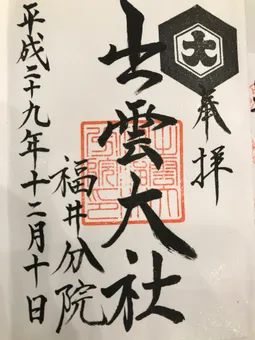 奉拝
大
出雲大社
福井分院
平成二十九年十二月十日